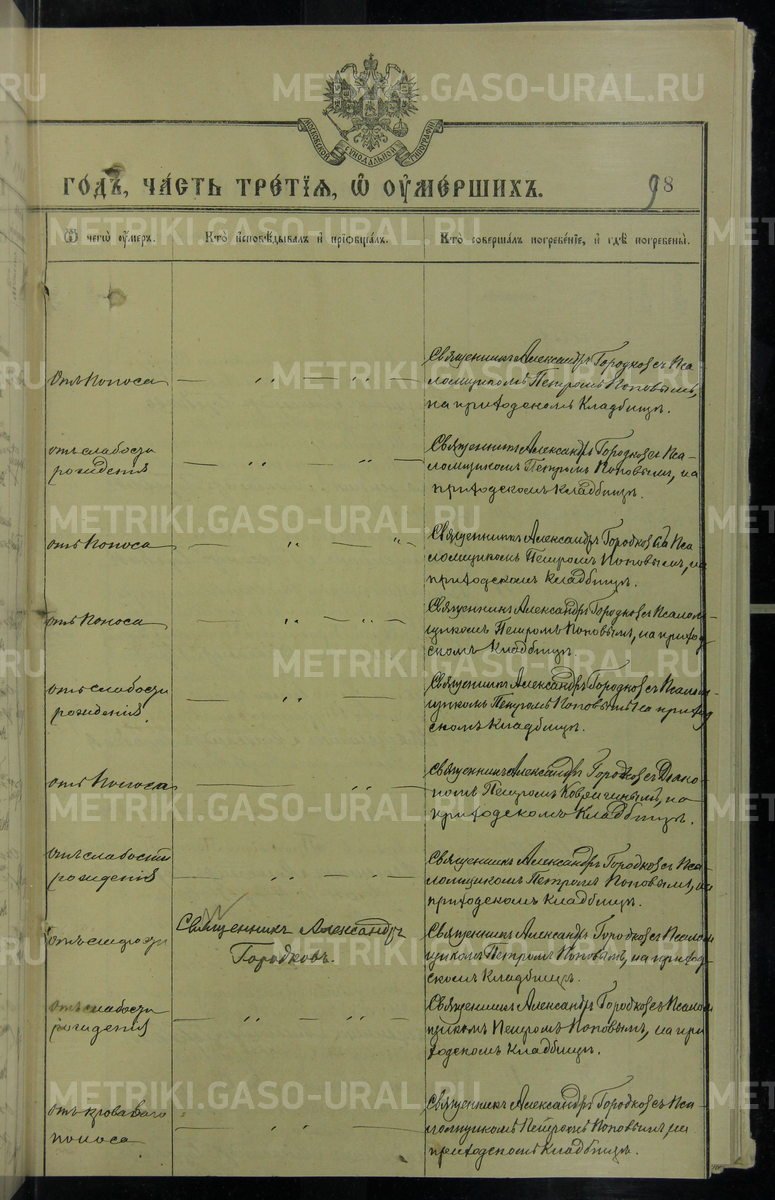 METRIKI.GASO-URAL.RU
МОСКОВСКОЙ СѴНОДАЛЬНОЙ ТИПОГРАФІИ
Го́дъ, ча́сть тре́тїѧ, ѡ҆ ᲂу҆ме́ршихъ.
98
Ѿ чегѡ̀ ᲂу҆́меръ.
Кто̀ и҆сповѣ́дывалъ и҆ прїѡбща́лъ.
Кто̀ соверша́лъ погребе́нїе, и҆ гдѣ̀ погребены̀.
Отъ поноса
Священникъ Александръ Городковъ съ Пса-
ломщикомъ Петромъ Поповымъ,
на приходскомъ кладбищѣ.
отъ слабости
рожденія
Священникъ Александръ Городковъ съ Пса-
ломщикомъ Петромъ Поповымъ, на
приходскомъ кладбищѣ.
отъ поноса
Священникъ Александръ Городковъ съ Пса
ломщикомъ Петромъ Поповымъ, на
приходскомъ кладбищѣ.
отъ поноса
Священникъ Александръ Городковъ съ Псалом
щикомъ Петромъ Поповымъ, на приход
скомъ кладбищѣ.
отъ слабости
рожденія.
Священникъ Александръ Городковъ съ Псалом
щикомъ Петромъ Поповымъ на приход
скомъ кладбищѣ.
отъ поноса
Священникъ Александръ Городковъ съ Діако-
номъ Петромъ Ковязинымъ, на
приходскомъ кладбищѣ.
отъ слабости
рожденія
Священникъ Александръ Городковъ съ Пса
ломщикомъ Петромъ Поповымъ, на
приходскомъ кладбищѣ.
отъ
Священникъ Александръ
Городковъ.
Священникъ Александръ Городковъ съ Псалом
щикомъ Петромъ Поповымъ, на приход
скомъ кладбищѣ.
отъ слабости
рожденія
Священникъ Александръ Городковъ съ Псалом
щикомъ Петромъ Поповымъ, на при
ходскомъ кладбищѣ.
отъ кроваваго
поноса
Священникъ Александръ Городковъ съ Пса-
ломщикомъ Петромъ Поповымъ на
приходскомъ кладбищѣ.